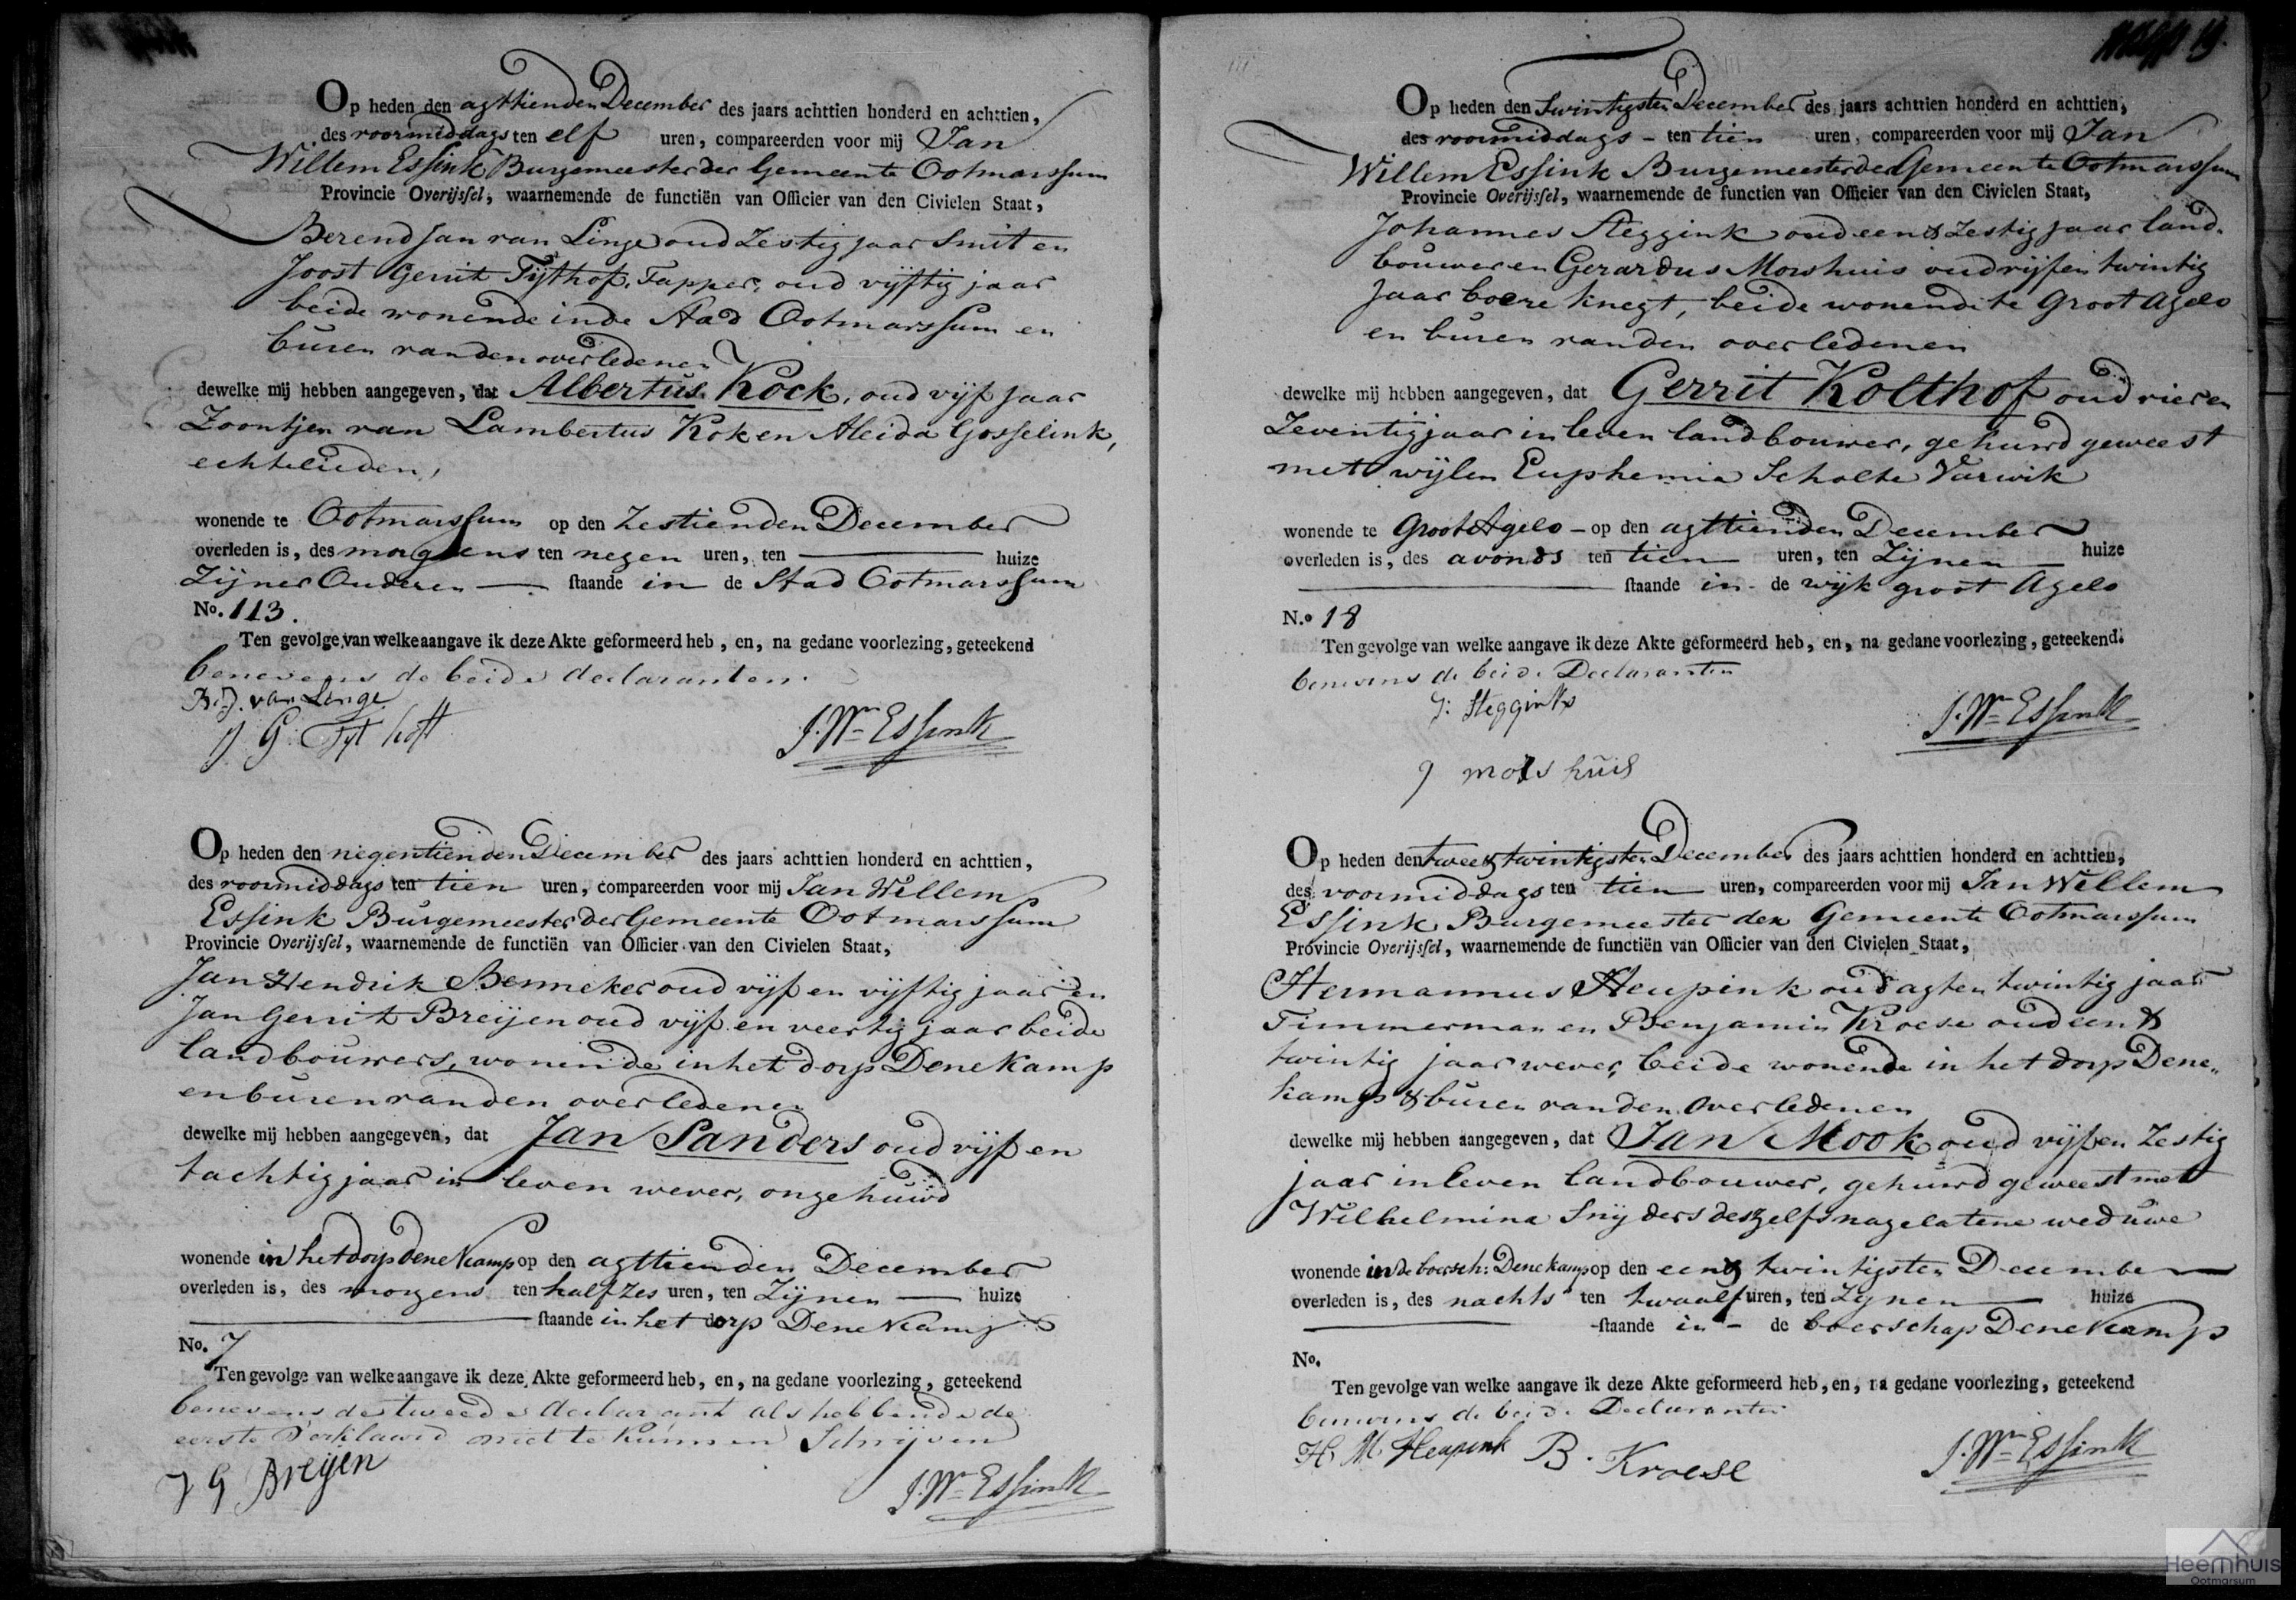 Op heden den agttienden December des jaars achttien honderd en achttien,
des voormiddags ten elf uren, compareerden voor mij Jan
Willem Essink Burgemeester der Gemeente Ootmarssum
Provincie Overijssel, waarnemende de functiën van Officier van den Civielen Staat,
Berend Jan van Linge oud Zestig jaar Smit en
Joost Gerrit Tijthof, Tapper, oud vijftig jaar
beide wonende in de Stad Ootmarssum en
buren van den overledenen
dewelke mij hebben aangegeven, dat Albertus Kock, oud vijf jaar
Zoontjen van Lambertus Kok en Aleida Gosselink,
echtelieden,
wonende te Ootmarssum op den Zestienden December
overleden is, des morgens ten negen uren, ten huize
Zijner Ouderen staande in de Stad Ootmarssum
No. 113.
Ten gevolge van welke aangave ik deze Akte geformeerd heb, en, na gedane voorlezing, geteekend
benevens de beide declaranten.
B. J. van Linge
J G Tijt hoff
J. Wm Essink
Op heden den negentienden December des jaars achttien honderd en achttien,
des voormiddags ten tien uren, compareerden voor mij Jan Willem
Essink Burgemeester der Gemeente Ootmarssum
Provincie Overijssel, waarnemende de functiën van Officier van den Civielen Staat,
Jan Hendrik Benneker oud vijf en vijftig jaar en
Jan Gerrit Breijen oud vijf en veertig jaar beide
landbouwers, wonende in het dorp Denekamp
en buren van den overledenen
dewelke mij hebben aangegeven, dat Jan Sanders oud vijf en
tachtig jaar in leven wever, ongehuwd
wonende in het dorp Denekamp op den agttienden December
overleden is, des morgens ten half zes uren, ten Zijnen huize
staande in het dorp Denekamp
No. 7
Ten gevolge van welke aangave ik deze Akte geformeerd heb, en, na gedane voorlezing, geteekend
benevens de tweede declarant als hebbende de
eerste verklaard niet te kunnen Schrijven
J G Breijen
J. Wm Essink
19.
Op heden den twintigsten December des jaars achttien honderd en achttien,
des voormiddags - ten tien uren, compareerden voor mij Jan
Willem Essink Burgemeester der Gemeente Ootmarssum
Provincie Overijssel, waarnemende de functien van Officier van den Civielen Staat,
Johannes Steggink oud een & Zestig jaar land-
bouwer en Gerardus Morshuis oud vijf en twintig
jaar boere knegt, beide wonende te Groot Agelo
en buren van den overledenen
dewelke mij hebben aangegeven, dat Gerrit Kolthof oud vier en
Zeventig jaar in leven landbouwer, gehuwd geweest
met wijlen Euphemia Scholte Varwik
wonende te Groot Agelo - op den agttienden December
overleden is, des avonds ten tien uren, ten Zijnen huize
staande in - de wijk groot Agelo
N.o 18
Ten gevolge van welke aangave ik deze Akte geformeerd heb, en, na gedane voorlezing, geteekend.
benevens de beide Declaranten
J: Steggink
J. Wm Essink
g mors huis
Op heden den twee & twintigsten December des jaars achttien honderd en achttien,
des voormiddags ten tien uren, compareerden voor mij Jan Willem
Essink Burgemeester der Gemeente Ootmarssum
Provincie Overijssel, waarnemende de functiën van Officier van den Civielen Staat,
Hermannus Heupink oud agt en twintig jaar
Timmerman en Benjamin Kroese oud een &
twintig jaar wever, beide wonende in het dorp Dene„
kamp & buren van den Overledenen
dewelke mij hebben aangegeven, dat Jan Mook oud vijf en Zestig
jaar in leven landbouwer, gehuwd geweest met
Wilhelmina Snijders deszelfs nagelatene weduwe
wonende in de boersch: Denekamp op den een & twintigsten December
overleden is, des nachts ten twaalf uren, ten Zijnen huize
staande in - de boerschap Denekamp
No.
Ten gevolge van welke aangave ik deze Akte geformeerd heb, en, na gedane voorlezing, geteekend
benevens de beide Declaranten
H. M. Heupink B. Kroese
J. Wm Essink
Heemhuis
Ootmarsum